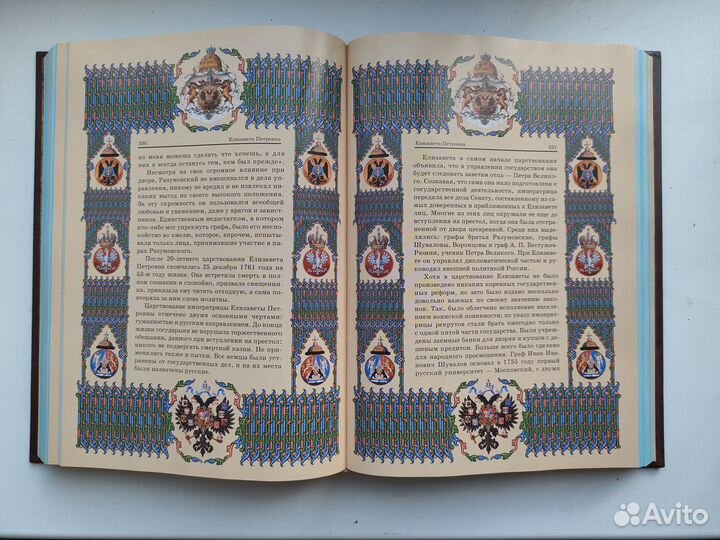 330 Елизавета Петровна
из меня можешь сделать что хочешь, а для
них я всегда останусь тем, кем был прежде».
Несмотря на свое огромное влияние при
дворе, Разумовский не вмешивался в дела
управления, никому не вредил и не извлекал ни-
каких выгод из своего высокого положения.
За эту скромность он пользовался всеобщей
любовью и уважением, даже у врагов и завист-
ников. Единственным недостатком, в котором
кто-либо мог упрекнуть графа, было его неспо-
койство во хмелю, которое, впрочем, испыты-
вали только лица, принимавшие участие в пи-
рах Разумовского.
После 20-летнего царствования Елизавета
Петровна скончалась 25 декабря 1761 года на
53-м году жизни. Она встретила смерть в пол-
ном сознании и спокойно, призвала священни-
ка, приказала ему читать отходную, а сама по-
вторяла за ним слова молитвы.
Царствование императрицы Елизаветы Пет-
ровны отмечено двумя основными чертами:
гуманностью и русским направлением. До конца
жизни государыня не нарушала торжественного
обещания, данного при вступлении на престол:
никого не подвергать смертной казни. Не при-
менялись также и пытки. Все немцы были уст-
ранены от государственных дел, и на их места
были назначены русские.
Елизавета Петровна 331
Елизавета в самом начале царствования
объявила, что в управлении государством она
будет следовать заветам отца — Петра Велико-
го. Сознавая, что сама она мало подготовлена к
государственной деятельности, императрица
передала все дела Сенату, составленному из са-
мых доверенных и приближенных к Елизавете
лиц. Многие из этих лиц окружали ее еще до
вступления на престол, когда она была отстра-
нена от двора цесаревной. Среди них выде-
лялись: графы братья Разумовские, графы
Шуваловы, Воронцовы и граф А. П. Бестужев-
Рюмин, ученик Петра Великого. При Елизаве-
те он управлял дипломатической частью и ру-
ководил внешней политикой России.
Хотя в царствование Елизаветы не было
произведено никаких коренных государствен-
ных реформ, но зато было издано несколько
довольно важных по своему значению зако-
нов. Так, было облегчено исполнение населе-
нием воинской повинности; по указу императ-
рицы рекрутов стали брать ежегодно только с
одной пятой части государства. Были учреж-
дены земные банки для дворян и купцов с де-
шевым кредитом. Больше всего было сделано
для народного просвещения. Граф Иван Ива-
нович Шувалов основал в 1755 году первый
русский университет — Московский, с двумя
Avito